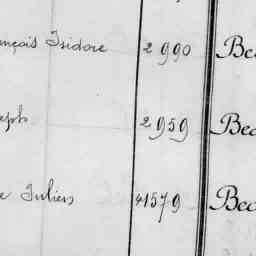 ançois Isidore 2990 Be
eph 2959 Bea
e Julien 41579 Bea